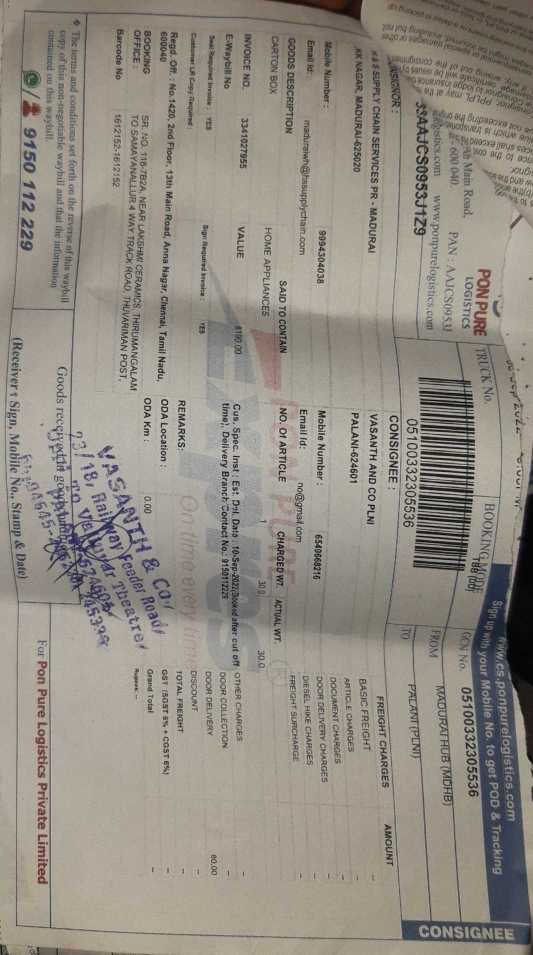 PON PURE
LOGISTICS
www.cs.ponpurelogistics.com
Sign up with your Mobile No. to get POD & Tracking
CONSIGNEE
Main Road,
600 040.
PAN : AAJCS0953J
www.ponpurelogistics.com
33AAJCS0953J1Z9
TRUCK No.
BOOKING MODE
GCN No. 05100332305536
05100332305536
FROM MADURAI HUB (MDHB)
TO PALANI (PLNI)
CONSIGNOR :
H & S SUPPLY CHAIN SERVICES PR - MADURAI
KK NAGAR, MADURAI-625020
Mobile Number : 9994304038
Email Id: maduraiwh@hssupplychain.com
CONSIGNEE :
VASANTH AND CO PLNI
PALANI-624601
Mobile Number : 6549668216
Email Id : no@gmail.com
GOODS DESCRIPTION SAID TO CONTAIN NO. Of ARTICLE CHARGED WT. ACTUAL WT.
CARTON BOX HOME APPLIANCES 1 30.0 30.0
INVOICE NO. 3341027955 VALUE 8190.00
E-Waybill No
Cus. Spec. Inst.: Est. Dlt. Date : 10-Sep-2022(Booked after cut off
time), Delivery Branch Contact No.: 9150112229
Seal Required Invoice : YES Sign Required Invoice : YES
Customer LR Copy Required :
REMARKS:
Regd. Off. : No.1420, 2nd Floor, 13th Main Road, Anna Nagar, Chennai, Tamil Nadu,
600040
ODA Location :
BOOKING OFFICE : SR. NO. 118-7B2A, NEAR LAKSHMI CERAMICS, THIRUMANGALAM
TO SAMAYANALLUR 4 WAY TRACK ROAD, THUVARIMAN POST,
ODA Km : 0.00
Barcode No 1612152-1612152
FREIGHT CHARGES AMOUNT
BASIC FREIGHT --
ARTICLE CHARGES --
DOCUMENT CHARGES --
DOOR DELIVERY CHARGES --
DIESEL HIKE CHARGES --
FREIGHT SURCHARGE --
OTHER CHARGES
DOOR COLLECTION --
DOOR DELIVERY 60.00
DISCOUNT --
TOTAL FREIGHT --
GST (SGST 6% + CGST 6%) --
Grand Total --
Rupees: --
On time every time
❖ The terms and conditions set forth on the reverse of this waybill
copy of this non-negotiable waybill and that the information
contained on this waybill.
9150 112 229
VASANTH & CO
23/18, Railway Feeder Road
Theatre
(Receiver's Sign, Mobile No., Stamp & Date)
For Pon Pure Logistics Private Limited